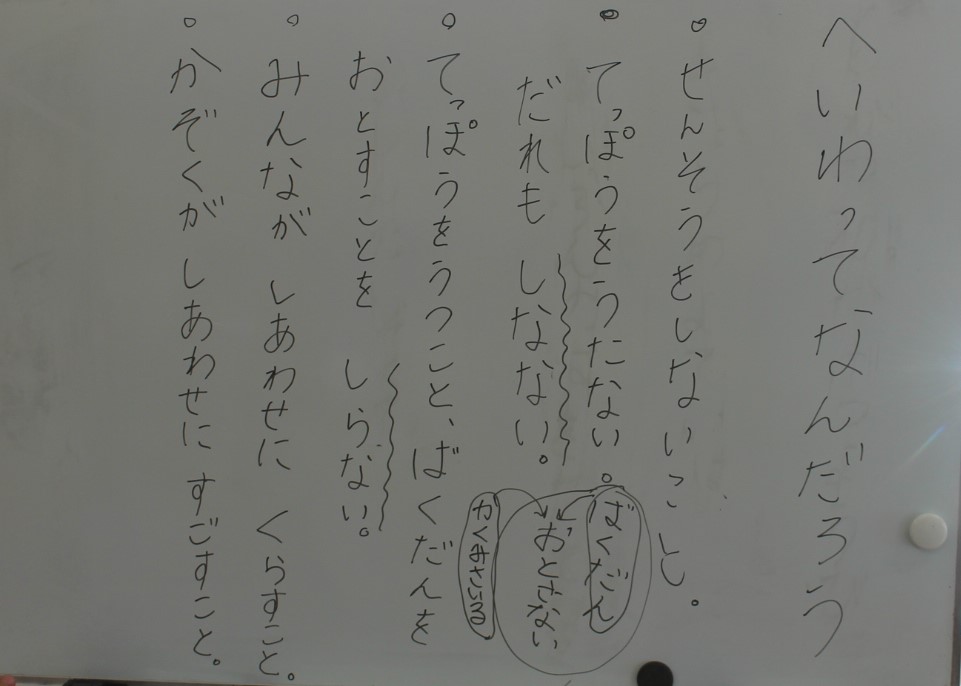 へいわってなんだろう
。せんそうをしないこと。
。てっぽうをうたない。
だれも しなない。
ばくだん
おとさない
。てっぽうをうつこと、ばくだんを
おとすことを しらない。
。みんなが しあわせに くらすこと。
。かぞくが しあわせに すごすこと。